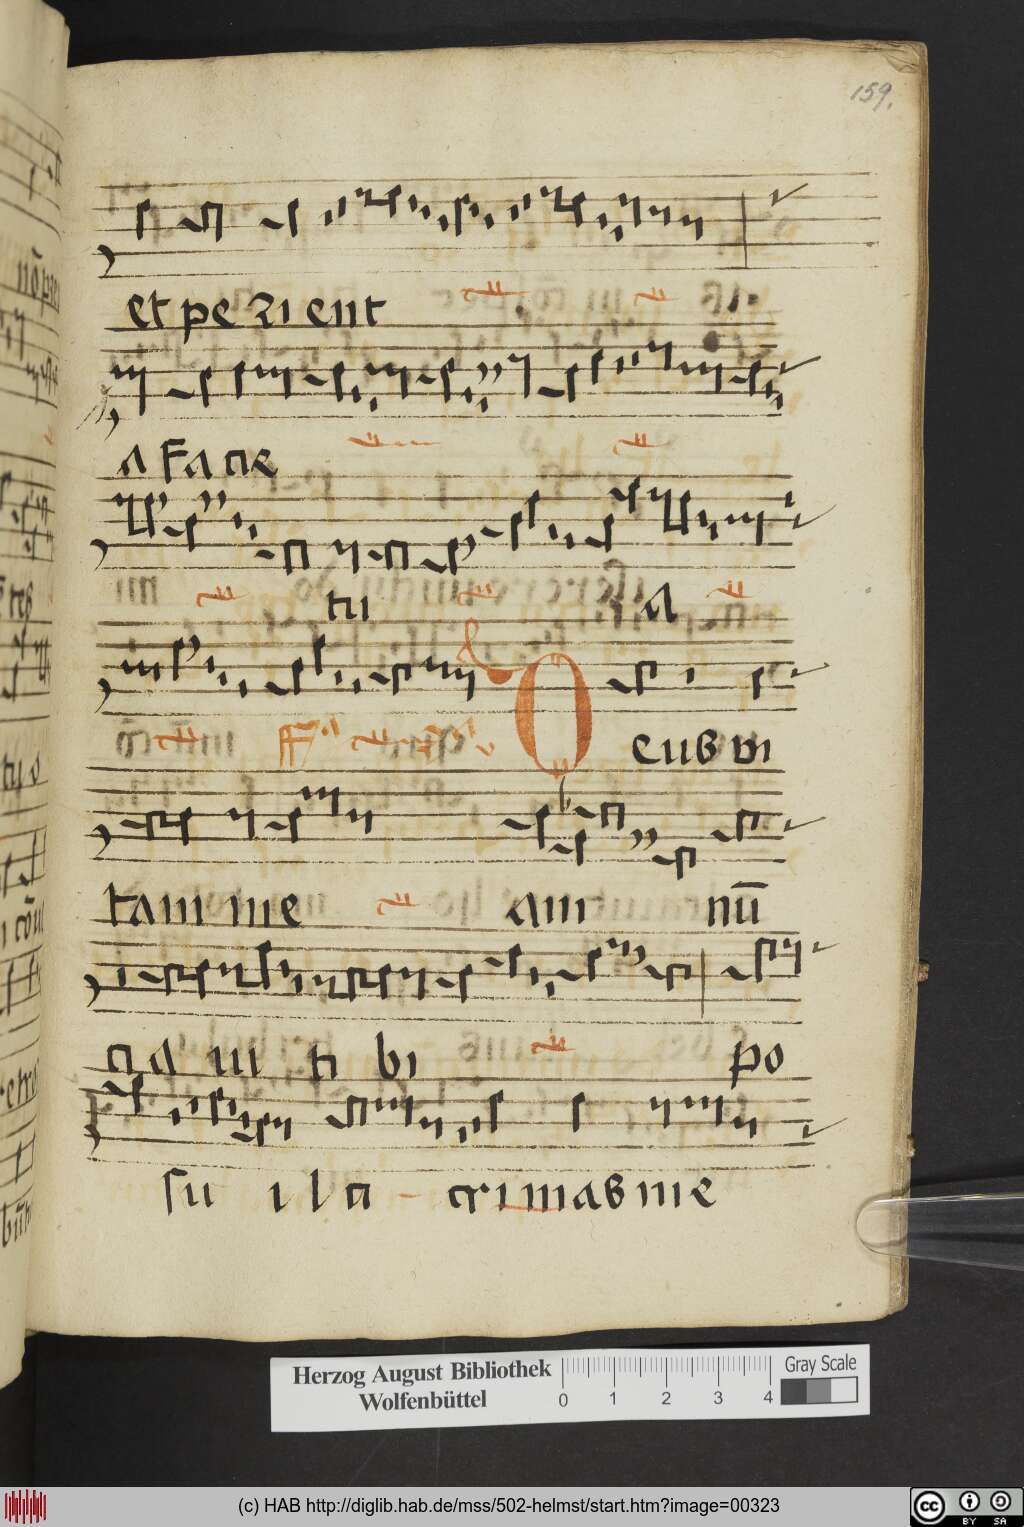 159.
et pe ri ent
a facie
tu a
Deus vi
tam me am nū
cia ui ti bi po
su i la crimas me
Herzog August Bibliothek
Wolfenbüttel
0 1 2 3 4
Gray Scale
(c) HAB http://diglib.hab.de/mss/502-helmst/start.htm?image=00323
cc BY SA